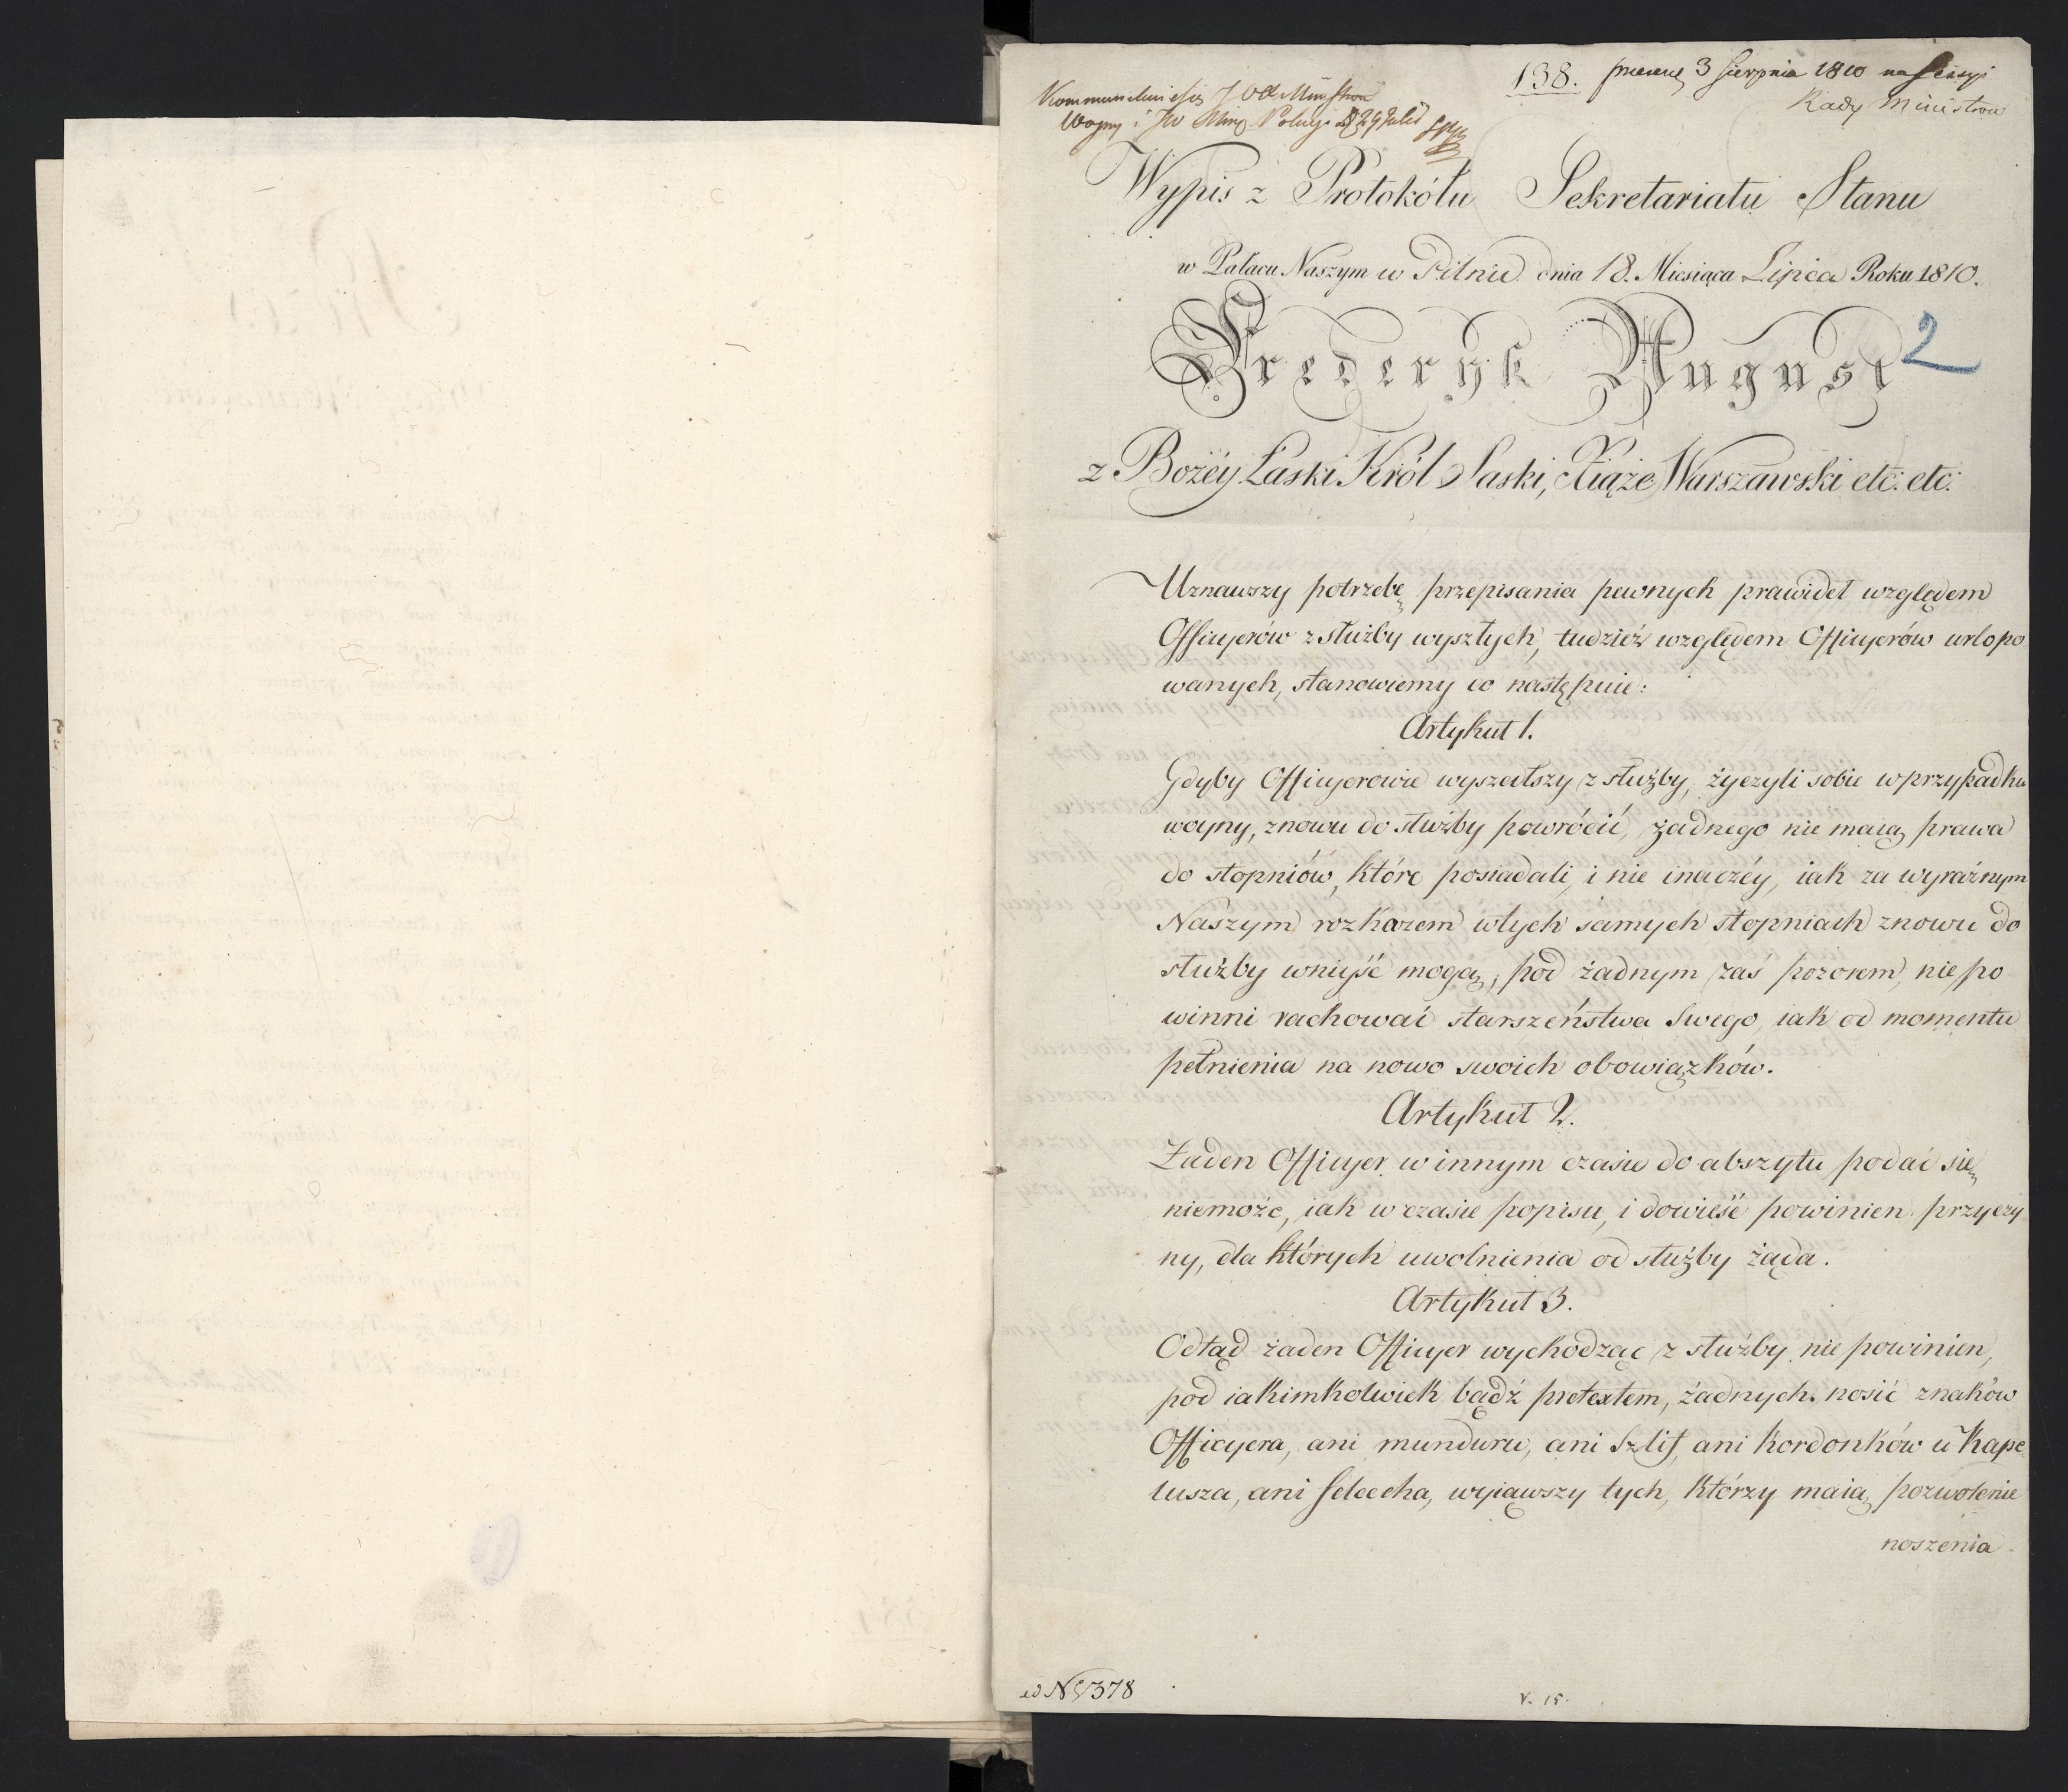 138. 3 Sierpnia 1810 na Sessyi
Rady Ministrow
Wojny i JW Min Policyi 29 Julii
Wypis z Protokółu Sekretariatu Stanu
w Pałacu Naszym w Pilnic dnia 18. Miesiąca Lipca Roku 1810.
Frederyk August
2
z Bożéy Łaski Król Saski, Xiąże Warszawski etc: etc:
Uznawszy potrzebę przepisania pewnych prawideł względem
Officyerów z służby wyszłych, tudzież względem Officyerów urlopo
wanych, stanowiemy co następuie:
Artykuł 1.
Gdyby Officyerowie wyszedłszy z służby, życzyli sobie w przypadku
woyny, znowu do służby powrócić, żadnego nie maią prawa
do stopniów, które posiadali, i nie inaczéy, iak za wyraźnym
Naszym rozkazem w tych samych stopniach znowu do
służby wniyść mogą, pod żadnym zaś pozorem, nie po
winni rachować starszeństwa Swego, iak od momentu
pełnienia na nowo swoich obowiązków.
Artykuł 2.
Żaden Officyer w innym czasie do abszytu podać się
niemoże, iak w czasie popisu, i dowieść powinien przyczy
ny, dla których uwolnienia od służby żąda.
Artykuł 3.
Odtąd żaden Officyer wychodząc z służby nie powinien,
pod iakimkolwiek bądź pretextem, żadnych nosić znaków
Officyera, ani munduru, ani Szlif, ani Kordonków u Kape
lusza, ani felcecha, wyiąwszy tych, którzy maią pozwolenie
noszenia
ad N 1378
V. 15.